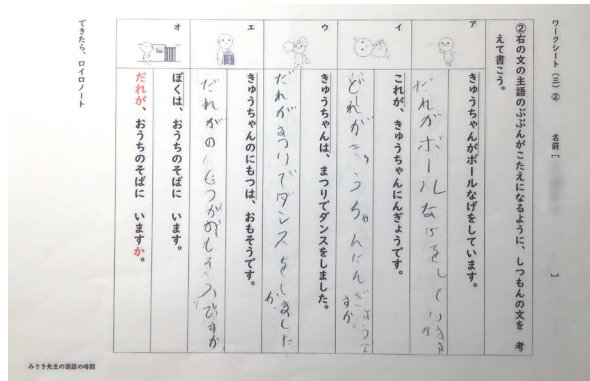 ワークシート（三）②　名前［　　　］
②右の文の主語のぶぶんがこたえになるように、しつもんの文を　考
えて書こう。
ア
きゅうちゃんがボールなげをしています。
だれがボールなげをしていますか
イ
これが、きゅうちゃんにんぎょうです。
どれがきゅうちゃんにんぎょうで
すか
ウ
きゅうちゃんは、まつりでダンスをしました。
だれがまつりでダンスをしました
か
エ
きゅうちゃんのにもつは、おもそうです。
だれがのにもつがおもそうですか
オ
ぼくは、おうちのそばに　います。
だれが、おうちのそばに　いますか。
できたら、ロイロノート
みさき先生の国語の時間